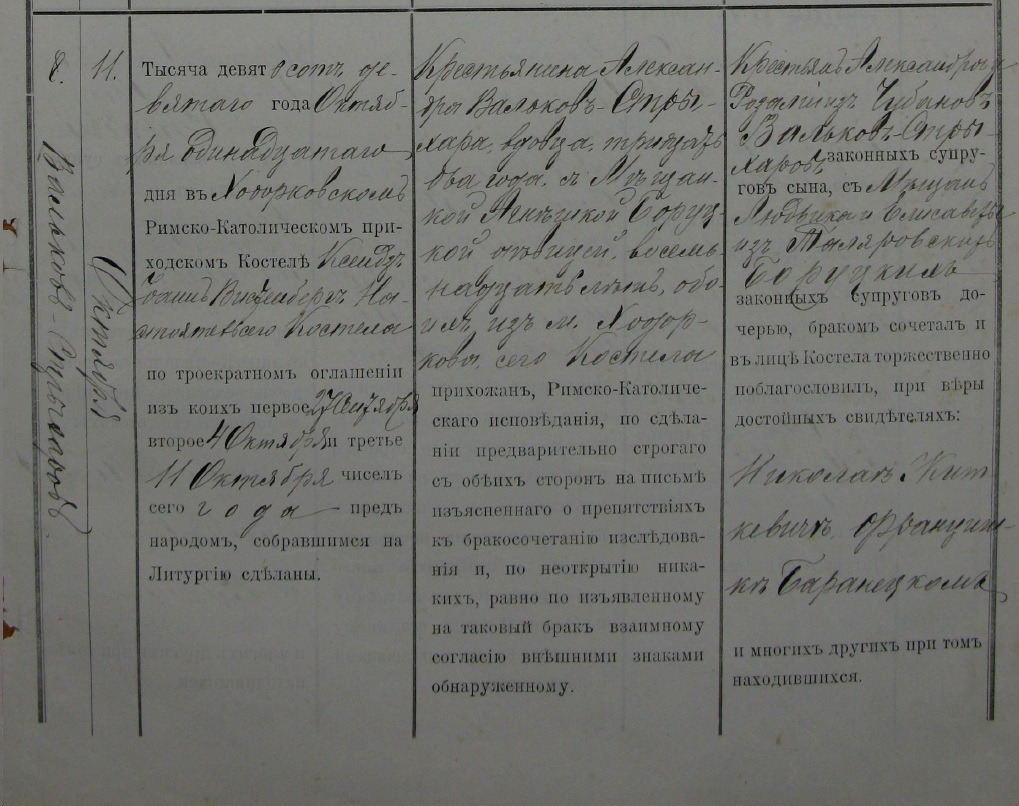 8.
Вальковъ-Стрыхаровъ.
11.
Октября
Тысяча девятьсотъ де-
вятаго года Октяб-
ря одинадцатаго
дня въ Ходорковскомъ
Римско-Католическомъ при-
ходскомъ Костелѣ Ксендзъ
настоятель сего Костела
по троекратномъ оглашеніи
изъ коихъ первое 27 Сентября
второе 4 Октября и третье
11 Октября чиселъ
сего года предъ
народомъ, собравшимся на
Литургію сдѣланы.
Крестьянина Алексан-
дра Вальковъ-Стры-
хара, вдовца, тридцать
два года, съ Мѣщан-
кой Агнѣшкой Боруц-
кой дѣвицей, восем-
надцать лѣтъ, обо-
ихъ изъ м. Ходор-
кова, сего Костела
прихожан, Римско-Католиче-
скаго исповѣданія, по сдѣла-
ніи предварительно строгаго
съ обѣихъ сторонъ на письмѣ
изъясненнаго о препятствіяхъ
къ бракосочетанію изслѣдова-
нія и, по неоткрытію ника-
кихъ, равно по изъявленному
на таковый бракъ взаимному
согласію внѣшними знаками
обнаруженному.
Крестьянъ Александра и
Розаліи изъ Чубановъ
Вальковъ-Стры-
харовъ законныхъ супру-
говъ сына, съ Мѣщанъ
Людвика и Елисаветы
изъ Таляровскихъ
Боруцкихъ
законныхъ супруговъ до-
черью, бракомъ сочеталъ и
въ лицѣ Костела торжественно
поблагословилъ, при вѣры
достойныхъ свидѣтеляхъ:
Николаѣ Жит-
кевичъ, Францишкѣ
Баранецкомъ
и многихъ другихъ при томъ
находившихся.